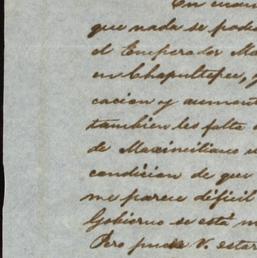 En cuan
que nada se pod
el Emperador Ma
en Chapultepec, y
cacion y aument
tambien les falta
de Maximiliano
condicion de que
me parece dificil
Gobierno se está m
Pero puede V. estar